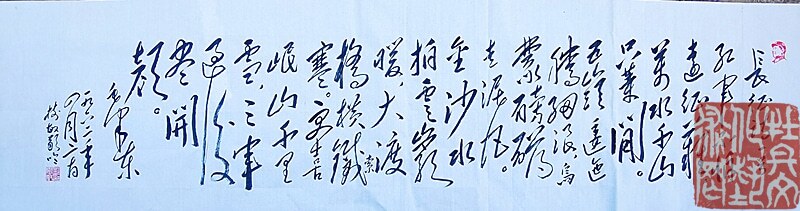 長征
红軍不怕
遠征難
萬水千山
只等閒。
五嶺逶迤
騰細浪,烏
蒙磅礴
走泥丸。
金沙水
拍雲崖
暖,大渡
橋横鐵索
寒。更喜
岷山千里
雪,三軍
過後
盡開
顏。
毛澤東
一九六二年
四月二十日